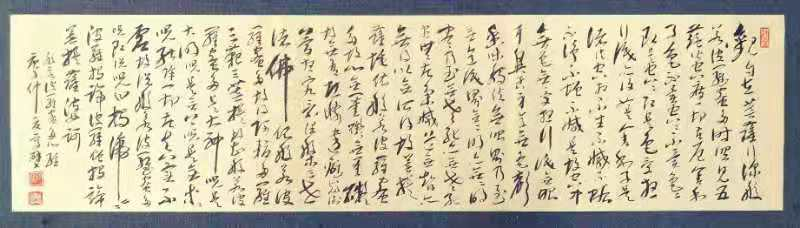 觀自在菩薩行深般
若波羅蜜多時照見五
蘊皆空度一切苦厄舍利
子色不異空空不異色色
即是空空即是色受想
行識亦復如是舍利子是
諸法空相不生不滅不垢
不淨不增不減是故空中
無色無受想行識無眼
耳鼻舌身意無色聲
香味觸法無眼界乃至
無意識界無無明亦無無明
盡乃至無老死亦無老死
盡無苦集滅道無智亦
無得以無所得故菩提
薩埵依般若波羅蜜
多故心無罣礙無罣礙
故無有恐怖遠離顛倒
夢想究竟涅槃三世
諸佛依般若波
羅蜜多故得阿耨多羅
三藐三菩提故知般若波
羅蜜多是大神咒是
大明咒是無上咒是無等等
咒能除一切苦真實不
虛故說般若波羅蜜多
咒即說咒曰揭諦揭諦
波羅揭諦波羅僧揭諦
菩提薩婆訶
般若波羅蜜多心經
庚子仲夏